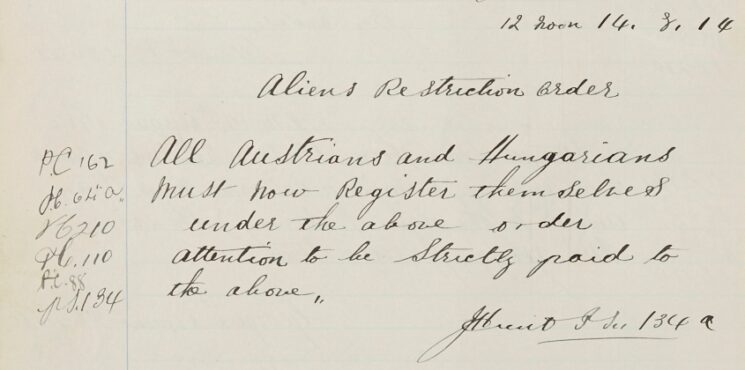 12 Noon 14. 8. 14
Aliens Restriction Order
All Austrians and Hungarians
P.C 162
must now Register themselves
P.C. 64 a
under the above order
PC 210
attention to be Strictly paid to
PC. 110
the above,,
P.C. 88
P.S. 134
134 a